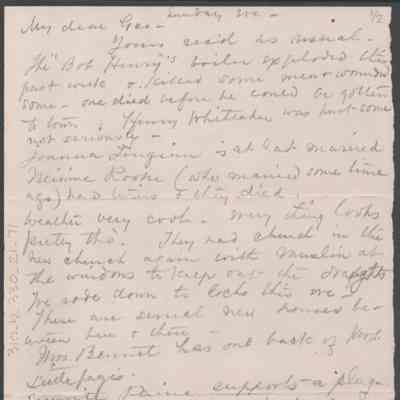 Sunday eve -
1/2
My dear Geo -
Yours rec'd as usual -
The "Bob Henry's" boiler exploded this
past week & killed some men & wounded
some - one died before he could be gotten
to town; Henry Whiteaker was hurt some
not seriously -
is at
married
(who married some time
ago) had twins & they died.
Weather very cool - every thing looks
pretty tho'. They had church in the
new church again with muslin at
the windows to keep out the draughts
We rode down to Locks this eve -
There are several new houses be-
tween here & there -
Mrs. Bennet has one back of Mrs.
Littlepages.
Paine supports a plug